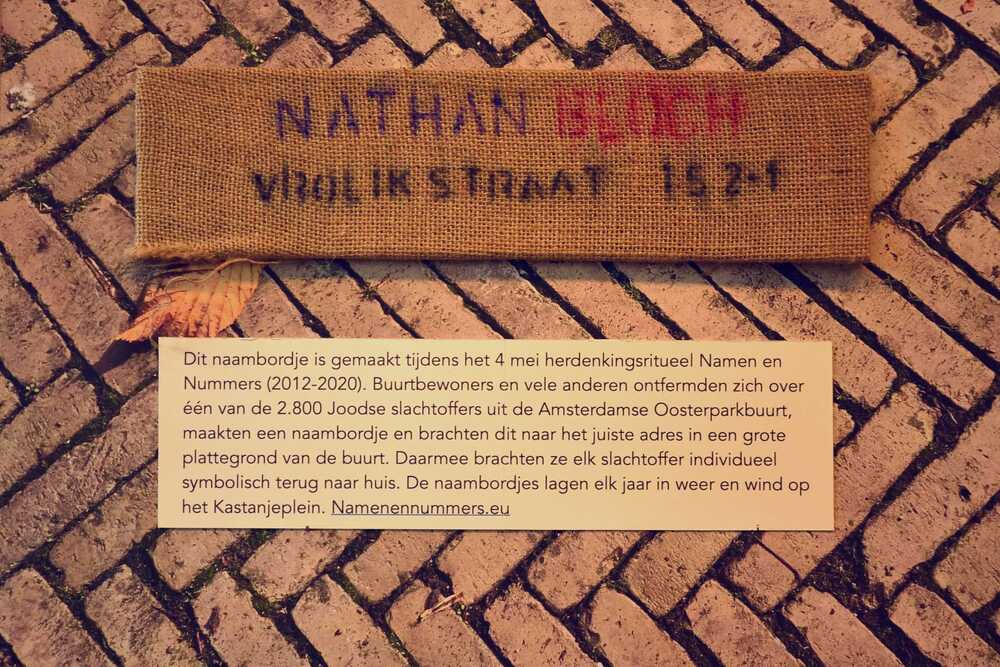 NATHAN BLOCH
VROLIKSTRAAT 152-1
Dit naambordje is gemaakt tijdens het 4 mei herdenkingsritueel Namen en
Nummers (2012-2020). Buurtbewoners en vele anderen ontfermden zich over
één van de 2.800 Joodse slachtoffers uit de Amsterdamse Oosterparkbuurt,
maakten een naambordje en brachten dit naar het juiste adres in een grote
plattegrond van de buurt. Daarmee brachten ze elk slachtoffer individueel
symbolisch terug naar huis. De naambordjes lagen elk jaar in weer en wind op
het Kastanjeplein. Namenennummers.eu